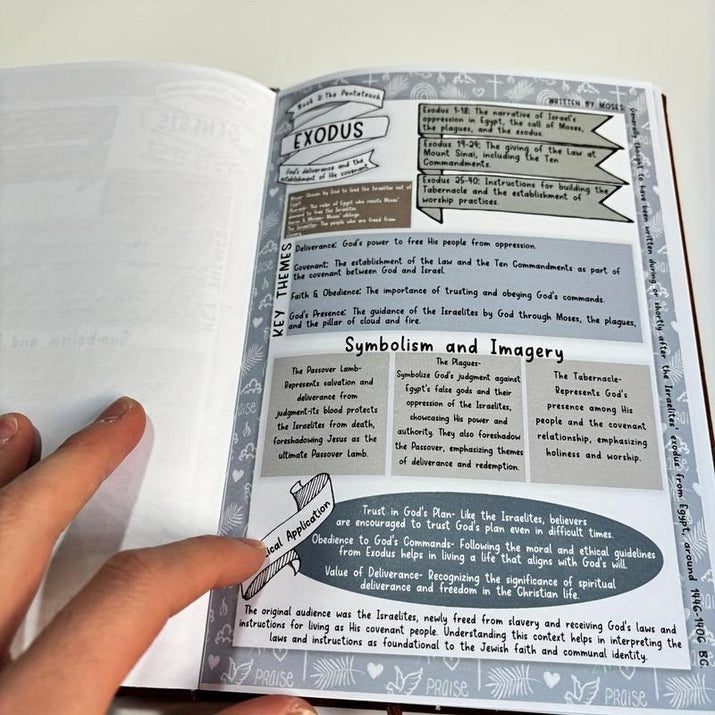 Book 2: The Pentateuch
EXODUS
God's deliverance and the
establishment of His covenant
WRITTEN BY MOSES:
Generally thought to have been written during or shortly after the Israelites' exodus from Egypt, around 1446-1406 BC
Exodus 1-18: The narrative of Israel's
oppression in Egypt, the call of Moses,
the plagues, and the exodus.
Exodus 19-24: The giving of the Law at
Mount Sinai, including the Ten
Commandments.
Exodus 25-40: Instructions for building the
Tabernacle and the establishment of
worship practices.
Moses: Chosen by God to lead the Israelites out of
Pharaoh: The ruler of Egypt who resists Moses'
demand to free the Israelites.
Aaron & Miriam: Moses' siblings
The Israelites: The people who are freed from
KEY THEMES
Deliverance: God's power to free His people from oppression.
Covenant: The establishment of the law and the Ten Commandments as part of
the covenant between God and Israel.
Faith & Obedience: The importance of trusting and obeying God's commands.
God's Presence: The guidance of the Israelites by God through Moses, the plagues,
and the pillar of cloud and fire.
Symbolism and Imagery
The Passover Lamb-
Represents salvation and
deliverance from
judgment-its blood protects
the Israelites from death,
foreshadowing Jesus as the
ultimate Passover Lamb.
The Plagues-
Symbolize God's judgment against
Egypt's false gods and their
oppression of the Israelites,
showcasing His power and
authority. They also foreshadow
the Passover, emphasizing themes
of deliverance and redemption.
The Tabernacle-
Represents God's
presence among His
people and the covenant
relationship, emphasizing
holiness and worship.
ical Application
Trust in God's Plan- Like the Israelites, believers
are encouraged to trust God's plan even in difficult times.
Obedience to God's Commands- Following the moral and ethical guidelines
from Exodus helps in living a life that aligns with God's will.
Value of Deliverance- Recognizing the significance of spiritual
deliverance and freedom in the Christian life.
The original audience was the Israelites, newly freed from slavery and receiving God's laws and
instructions for living as His covenant people. Understanding this context helps in interpreting the
laws and instructions as foundational to the Jewish faith and communal identity.
PRAISE
PRAISE